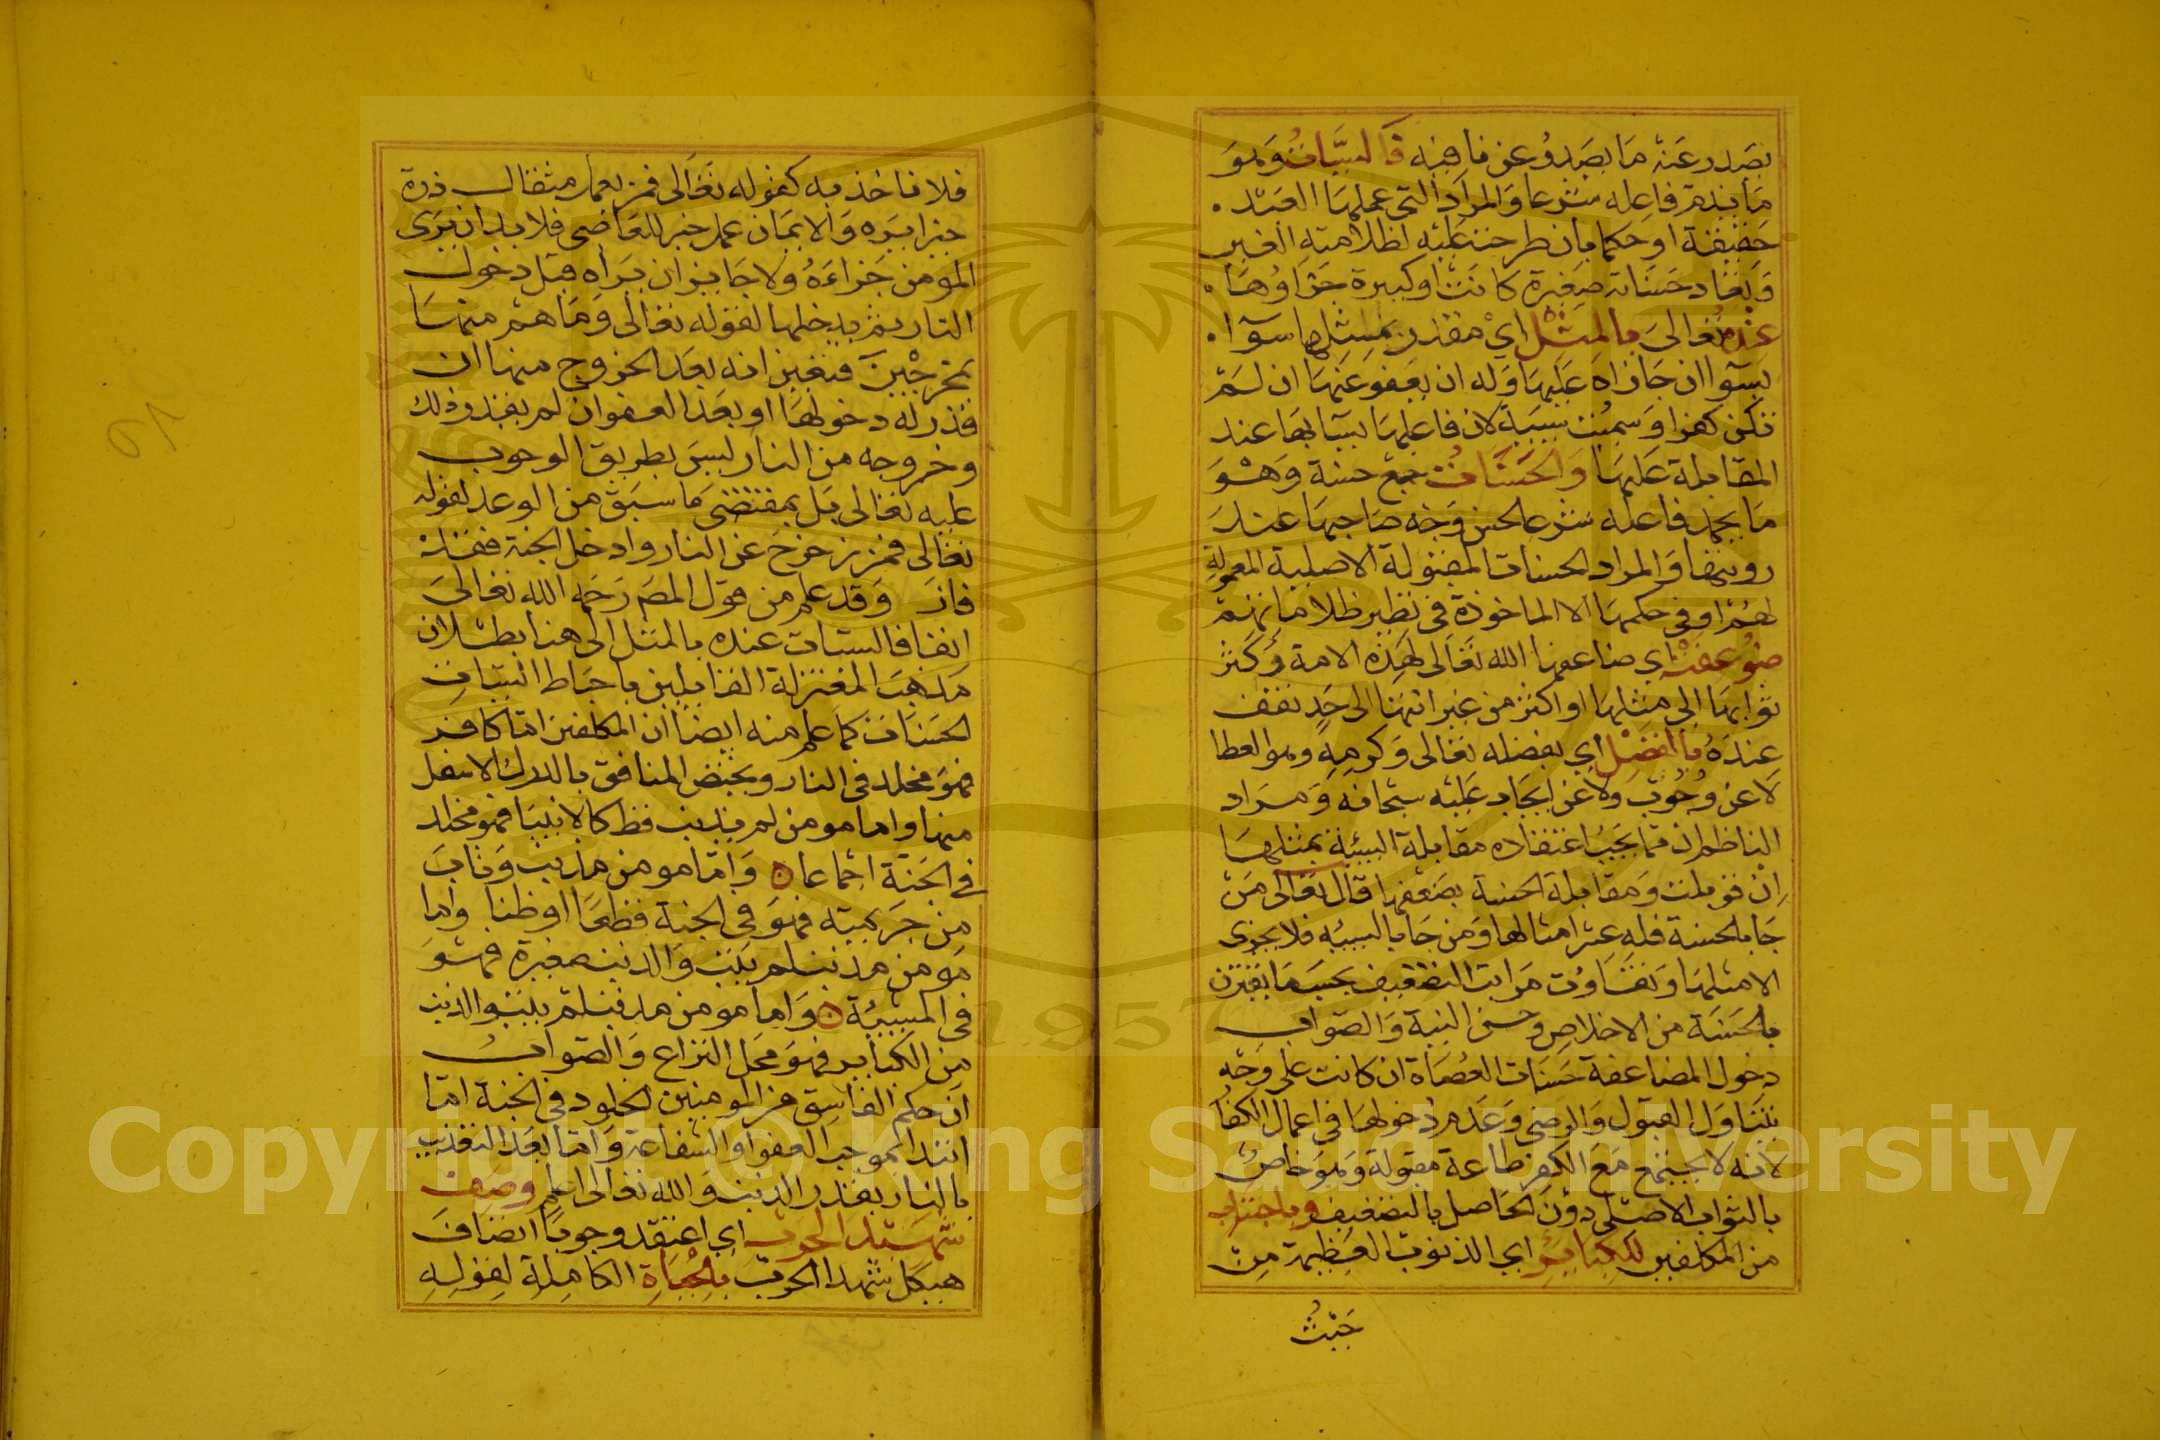 يصدر عنه ما يصدر عن فاهمه فالسيات وهو
ما يذم فاعله شرعا والمراد التي عملها العبد
حقيقة او حكما بان طرحت عليه لظلامته الغير
ونفاد حسناته صغيرة كانت او كبيرة جزاوها
عنده تعالى بالمثل اي مقدر بمثلها سوآء
بسوا ان جازاه عليها وله ان يعفو عنها ان لم
تكن كفرا وسميت سيية لان فاعلها يسآ بها عند
المقابلة عليها والحسنات جمع حسنة وهو
ما يحمد فاعله شرعا لحسن وجه صاحبها عند
رويتها والمراد الحسنات المقبولة الاصلية المعمولة
لهم او في حكمها لا الماخوذة في نظير ظلاماتهم
ضوعفت اي ضاعفها الله تعالى لهذه الامة وكثر
ثوابها الى مثلها او اكثر من غير انتها الى حد تقف
عنده بالفضل اي بفضله تعالى وكرمه وهو العطا
لا عن وجوب ولا عن ايجاب عليه سبحانه ومراد
الناظم ان مما يجب اعتقاده مقابلة السيئة بمثلها
ان قوبلت ومقابلة الحسنة بضعفها قال تعالى من
جا بالحسنة فله عشر امثالها ومن جا بالسييه فلا يجزى
الا مثلها وتفاوت مراتب التضعيف بحسب ما يقترن
بالحسنة من الاخلاص وحسن النية والصواب
دخول المضاعفة حسنات العصاة ان كانت على وجه
يتناول القبول والرضى وعدم دخولها في اعمال الكفار
لانه لا يجتمع مع الكفر طاعة مقبولة وهو خاص
بالثواب الاصلي دون الحاصل بالتضعيف وباجتناب
من المكلفين للكباير اي الذنوب العظيمة من
حيث
فلا فاخذ به كقوله تعالى فمن يعمل مثقال ذرة
خيرا يره والايمان عمل خير للعاصي فلا بد ان يرى
المومن جزاءه ولا جايز ان يراه قبل دخول
النار ثم يدخلها لقوله تعالى وما هم منها
بمخرجين فتعين انه بعد الخروج منها ان
قدر له دخولها او بعد العفو ان لم يقدر وذلك
وخروجه من النار ليس بطريق الوجوب
عليه تعالى بل بمقتضى ما سبق من الوعد لقوله
تعالى فمن زحزح عن النار وادخل الجنة فقد
فاز وقد علم من قول المص رحمه الله تعالى
انفا فالسيات عنده بالمثل الى هنا بطلان
مذهب المعتزلة القايلين باحباط السيات
الحسنات كما علم منه ايضا ان المكلفين اما كافر
فهو مخلد في النار ويختص المنافق بالدرك الاسفل
منها واما مومن لم يذنب قط كالانبيا فهو مخلد
في الجنة اجماعا واما مومن مذنب وتاب
من جريمته فهو في الجنة قطعا او ظنا واما
مومن مذنب لم يتب والذنب صغيرة فهو
في المشيئة واما مومن مذنب لم يتب والذنب
من الكباير فهو محل النزاع والصواب
ان حكم الفاسق من المومنين الخلود في الجنة اما
ابتدا بموجب العفو او الشفاعة واما بعد التعذيب
بالنار بقدر الذنب والله تعالى اعلم وصف
شهيد الحرب اي اعتقد وجوبا اتصاف
هيكل شهدا الحرب بالحياة الكاملة لقوله